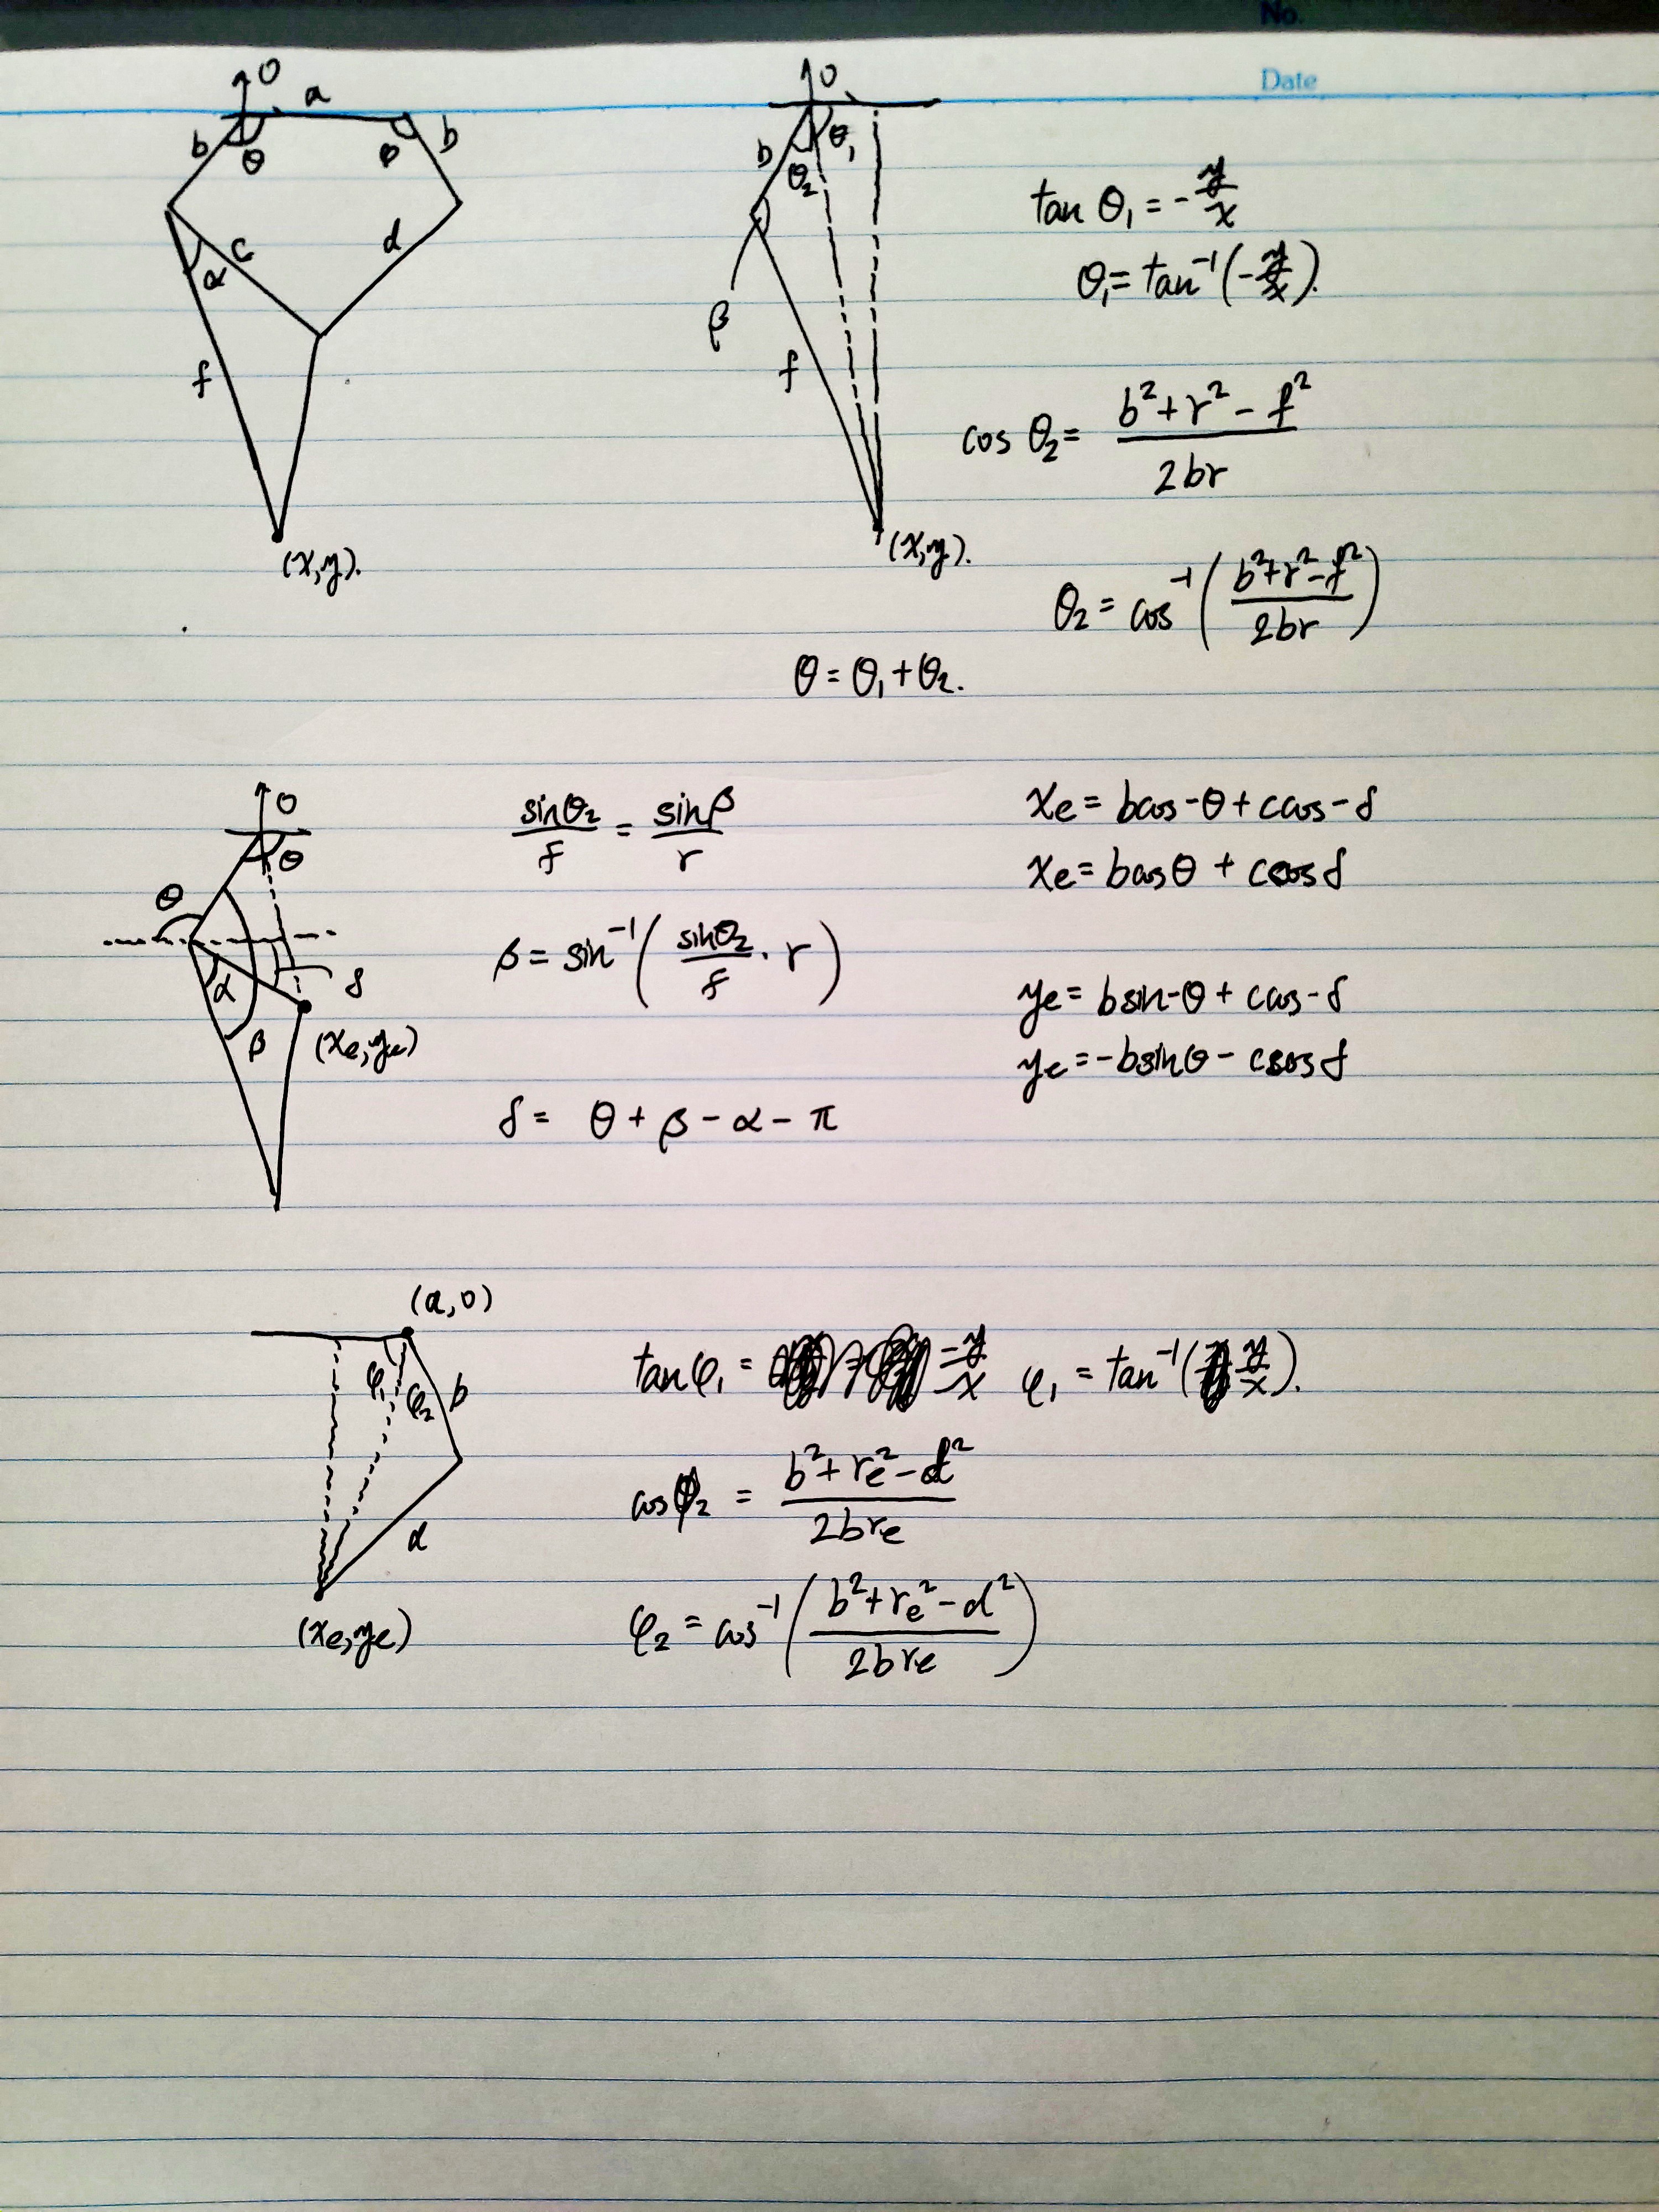 No.
Date
O
a
b
θ
φ
b
c
d
α
f
(x,y).
O
b
θ₁
θ₂
β
f
(x,y).
tan θ₁ = -y/x
θ₁ = tan⁻¹(-y/x).
cos θ₂ = (b²+r²-f²)/(2br)
θ₂ = cos⁻¹((b²+r²-f²)/(2br))
θ = θ₁+θ₂.
O
θ
θ
α
δ
β
(xe,ye)
sinθ₂/f = sinβ/r
β = sin⁻¹(sinθ₂/f · r)
δ = θ + β - α - π
xe = bcos-θ + ccos-δ
xe = bcosθ + ccosδ
ye = bsin-θ + ccos-δ
ye = -bsinθ -
(a,0)
φ₁
φ₂
b
d
(xe,ye)
tanφ₁ = -y/-x φ₁ = tan⁻¹(y/x).
cosφ₂ = (b²+re²-d²)/(2bre)
φ₂ = cos⁻¹((b²+re²-d²)/(2bre))